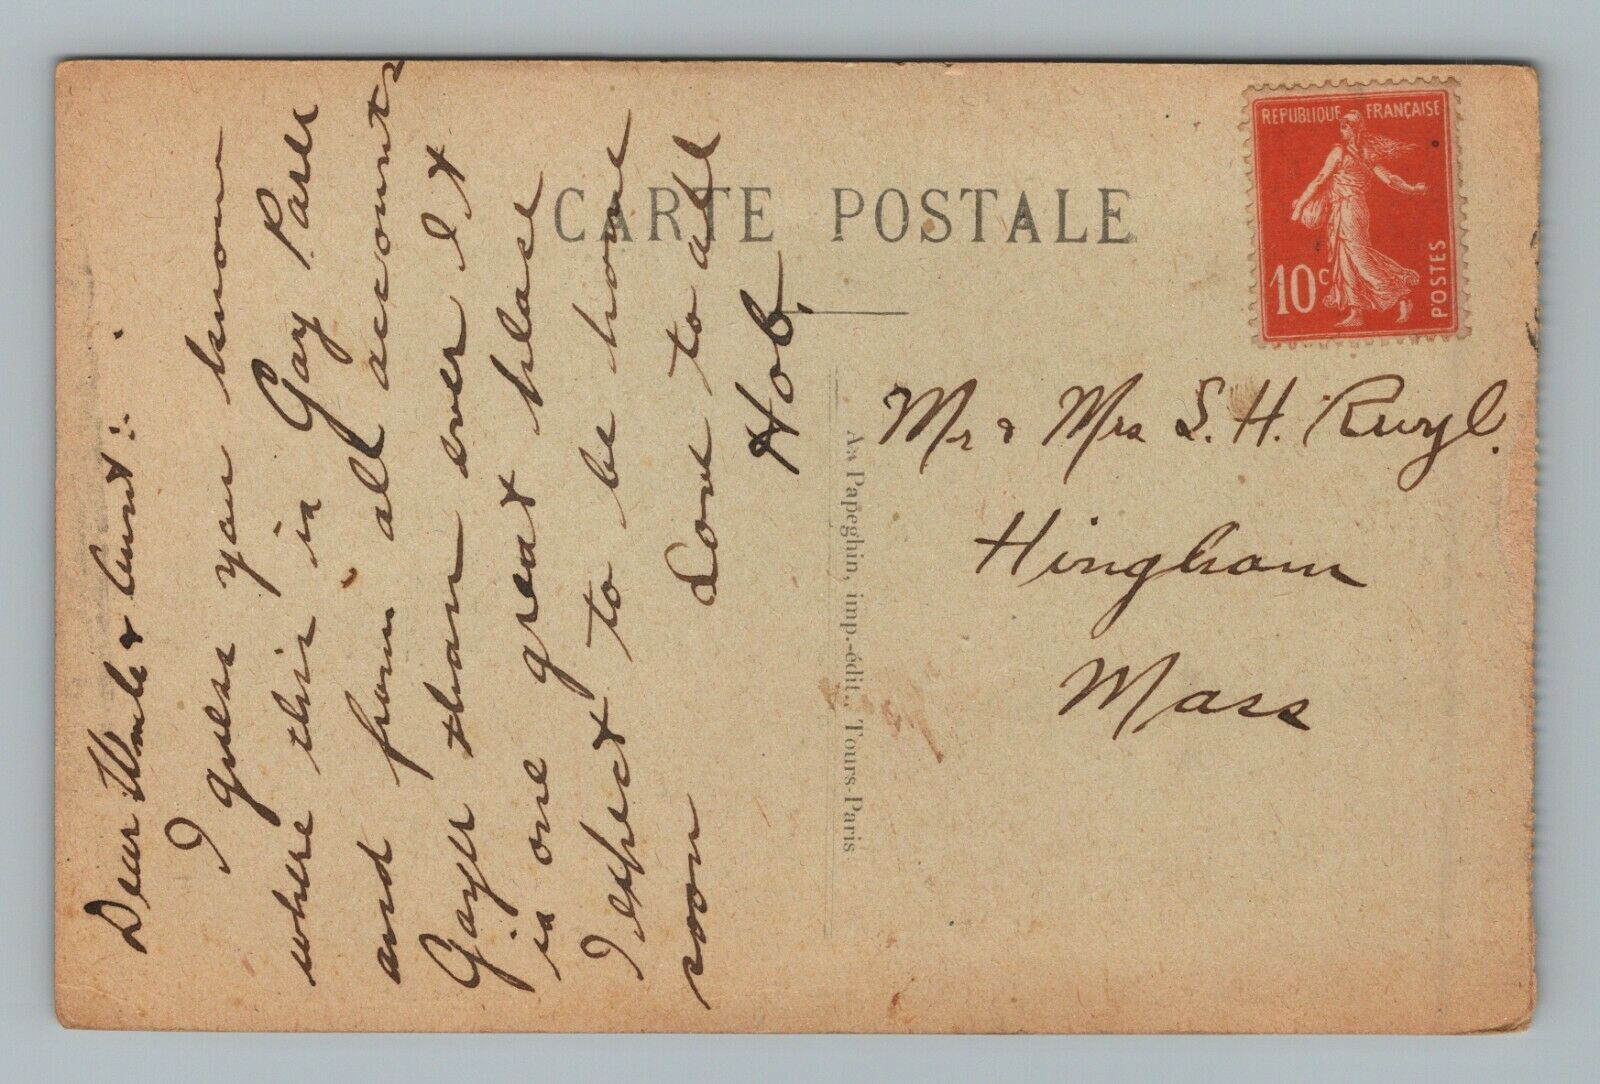 CARTE POSTALE
REPUBLIQUE FRANÇAISE
10c
POSTES
Dear Uncle & Aunt:
I guess you know
where this is Gay Paree
and from all accounts
Gayer than ever It
is one great place
I expect to be home
soon Love to all
Hob.
Aᴅ Papeghin, imp.-édit., Tours-Paris
Mr & Mrs S. H.
Hingham
Mass